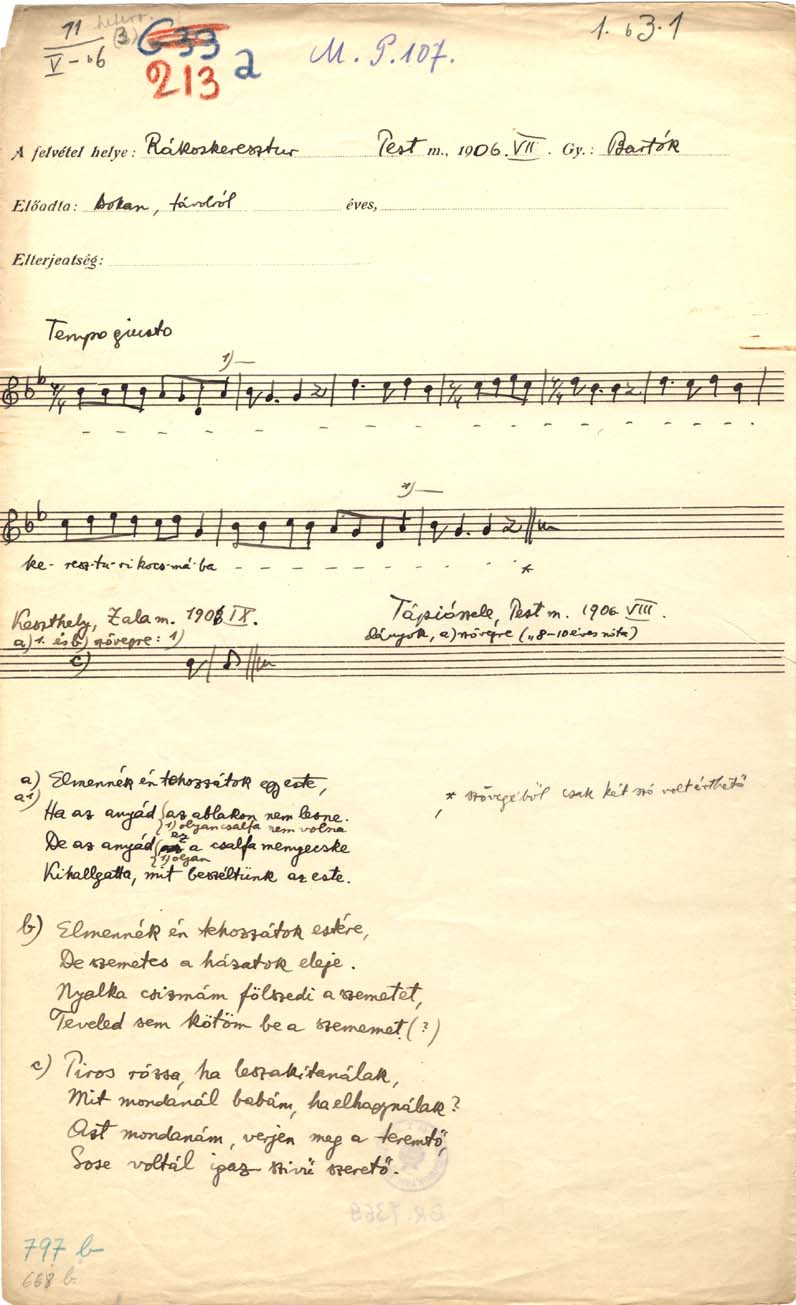 11 heter. 633 1. b3.1
V-b6 (3) 213 a M. P. 107.
A felvétel helye: Rákoskeresztur Pest m., 1906. VII. Gy.: Bartók
Előadta: sokan, távolról éves,
Elterjedtség:
Tempo giusto
1)
1)
ke-resz-tu-ri kocs-má-ba *
Keszthely, Zala m. 1906 IX. Tápiószele, Pest m. 1906 VIII.
a) 1. és b) szövegre: 1) Lányok, a) szövegre („8-10 éves nóta)
c)
a) Elmennék én tehozzátok egy este,
a1) * szövegéből csak két szó volt érthető
Ha az anyád az ablakon nem lesne.
1) olyan csalfa nem volna
De az anyád ez a csalfa menyecske
1) olyan
Kihallgatta, mit beszéltünk az este.
b) Elmennék én tehozzátok estére,
De szemetes a házatok eleje.
Nyalka csizmám fölszedi a szemetet,
Teveled sem kötöm be a szememet (?)
c) Piros rózsa, ha leszakítanálak,
Mit mondanál babám, ha elhagynálak?
Azt mondanám, verjen meg a teremtő,
Sose voltál igaz szivü szerető.
BR. 7369
797 b
668 b